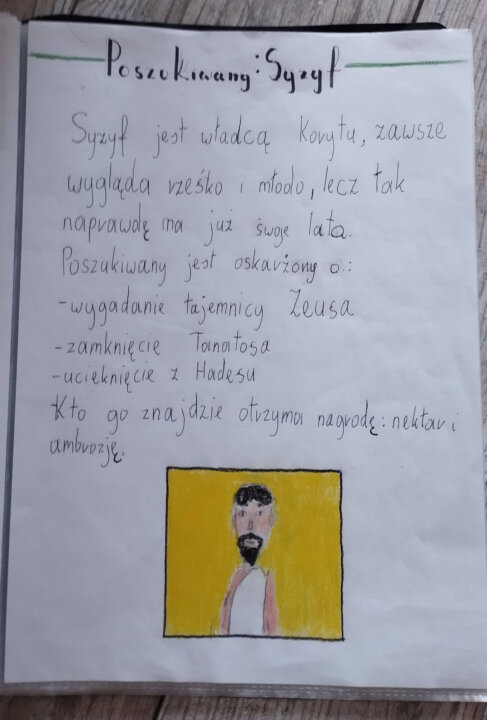 Poszukiwany: Syzyf
Syzyf jest władcą Korytu, zawsze
wygląda rześko i młodo, lecz tak
naprawdę ma już swoje lata.
Poszukiwany jest oskarżony o:
-wygadanie tajemnicy Zeusa
-zamknięcie Tanatosa
-ucieknięcie z Hadesu
Kto go znajdzie otrzyma nagrodę: nektar i
ambrozję.